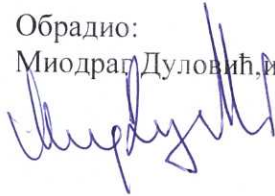 Обрадио:
Миодраг Дуловић,